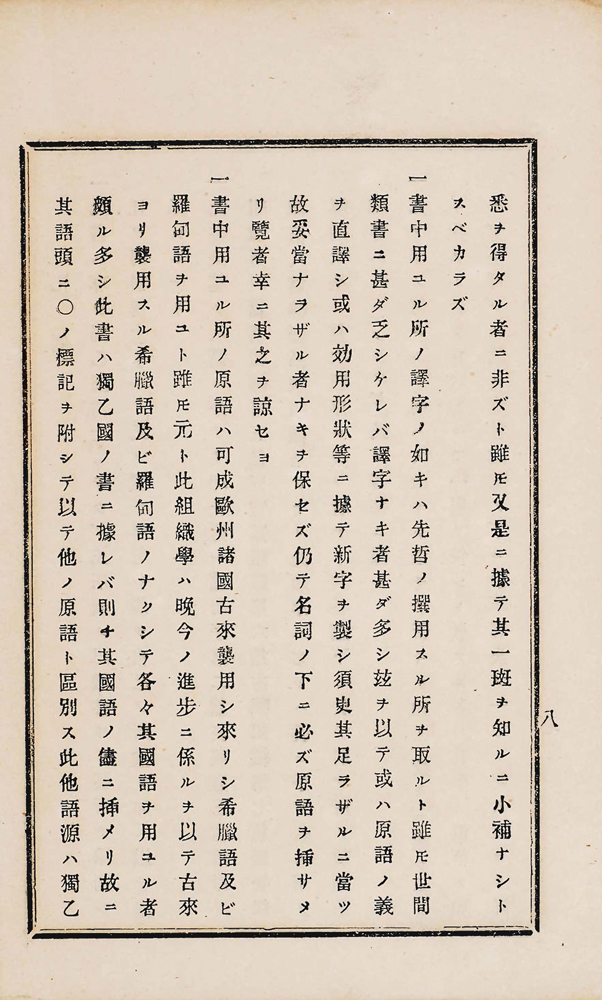 悉ヲ得タル者ニ非ズト雖モ又是ニ據テ其一斑ヲ知ルニ小補ナシト
スベカラズ
一書中用ユル所ノ譯字ノ如キハ先哲ノ撰用スル所ヲ取ルト雖モ世間
類書ニ甚ダ乏シケレバ譯字ナキ者甚ダ多シ玆ヲ以テ或ハ原語ノ義
ヲ直譯シ或ハ効用形狀等ニ據テ新字ヲ製シ須臾其足ラザルニ當ツ
故妥當ナラザル者ナキヲ保セズ仍テ名詞ノ下ニ必ズ原語ヲ揷サメ
リ覽者幸ニ其之ヲ諒セヨ
一書中用ユル所ノ原語ハ可成歐州諸國古來襲用シ來リシ希臘語及ビ
羅甸語ヲ用ユト雖モ元ト此組織學ハ晩今ノ進步ニ係ルヲ以テ古來
ヨリ襲用スル希臘語及ビ羅甸語ノナクシテ各々其國語ヲ用ユル者
頗ル多シ此書ハ獨乙國ノ書ニ據レバ則チ其國語ノ儘ニ揷メリ故ニ
其語頭ニ〇ノ標記ヲ附シテ以テ他ノ原語ト區別ス此他語源ハ獨乙
八